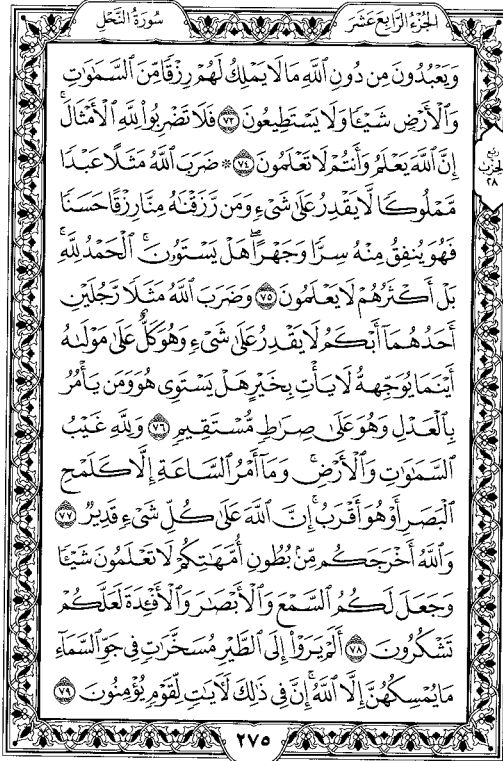 الجزء الرابع عشر
سورة النحل
وَيَعْبُدُونَ مِن دُونِ ٱللَّهِ مَا لَا يَمْلِكُ لَهُمْ رِزْقًا مِّنَ ٱلسَّمَٰوَٰتِ
وَٱلْأَرْضِ شَيْـًٔا وَلَا يَسْتَطِيعُونَ ٧٣ فَلَا تَضْرِبُوا۟ لِلَّهِ ٱلْأَمْثَالَ ۚ
إِنَّ ٱللَّهَ يَعْلَمُ وَأَنتُمْ لَا تَعْلَمُونَ ٧٤ ۞ ضَرَبَ ٱللَّهُ مَثَلًا عَبْدًا
مَّمْلُوكًا لَّا يَقْدِرُ عَلَىٰ شَىْءٍ وَمَن رَّزَقْنَٰهُ مِنَّا رِزْقًا حَسَنًا
فَهُوَ يُنفِقُ مِنْهُ سِرًّا وَجَهْرًا ۖ هَلْ يَسْتَوُۥنَ ۚ ٱلْحَمْدُ لِلَّهِ ۚ
بَلْ أَكْثَرُهُمْ لَا يَعْلَمُونَ ٧٥ وَضَرَبَ ٱللَّهُ مَثَلًا رَّجُلَيْنِ
أَحَدُهُمَآ أَبْكَمُ لَا يَقْدِرُ عَلَىٰ شَىْءٍ وَهُوَ كَلٌّ عَلَىٰ مَوْلَىٰهُ
أَيْنَمَا يُوَجِّههُّ لَا يَأْتِ بِخَيْرٍ هَلْ يَسْتَوِى هُوَ وَمَن يَأْمُرُ
بِٱلْعَدْلِ وَهُوَ عَلَىٰ صِرَٰطٍ مُّسْتَقِيمٍ ٧٦ وَلِلَّهِ غَيْبُ
ٱلسَّمَٰوَٰتِ وَٱلْأَرْضِ ۚ وَمَآ أَمْرُ ٱلسَّاعَةِ إِلَّا كَلَمْحِ
ٱلْبَصَرِ أَوْ هُوَ أَقْرَبُ ۚ إِنَّ ٱللَّهَ عَلَىٰ كُلِّ شَىْءٍ قَدِيرٌ ٧٧
وَٱللَّهُ أَخْرَجَكُم مِّنۢ بُطُونِ أُمَّهَٰتِكُمْ لَا تَعْلَمُونَ شَيْـًٔا
وَجَعَلَ لَكُمُ ٱلسَّمْعَ وَٱلْأَبْصَٰرَ وَٱلْأَفْـِٔدَةَ لَعَلَّكُمْ
تَشْكُرُونَ ٧٨ أَلَمْ يَرَوْا۟ إِلَى ٱلطَّيْرِ مُسَخَّرَٰتٍ فِى جَوِّ ٱلسَّمَآءِ
مَا يُمْسِكُهُنَّ إِلَّا ٱللَّهُ ۗ إِنَّ فِى ذَٰلِكَ لَءَايَٰتٍ لِّقَوْمٍ يُؤْمِنُونَ ٧٩
ربع
الحزب
٢٨
٢٧٥